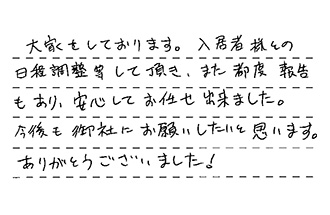 大家をしております。入居者様との
日程調整等して頂き、また都度報告
もあり、安心してお任せ出来ました。
今後も御社にお願いしたいと思います。
ありがとうございました!